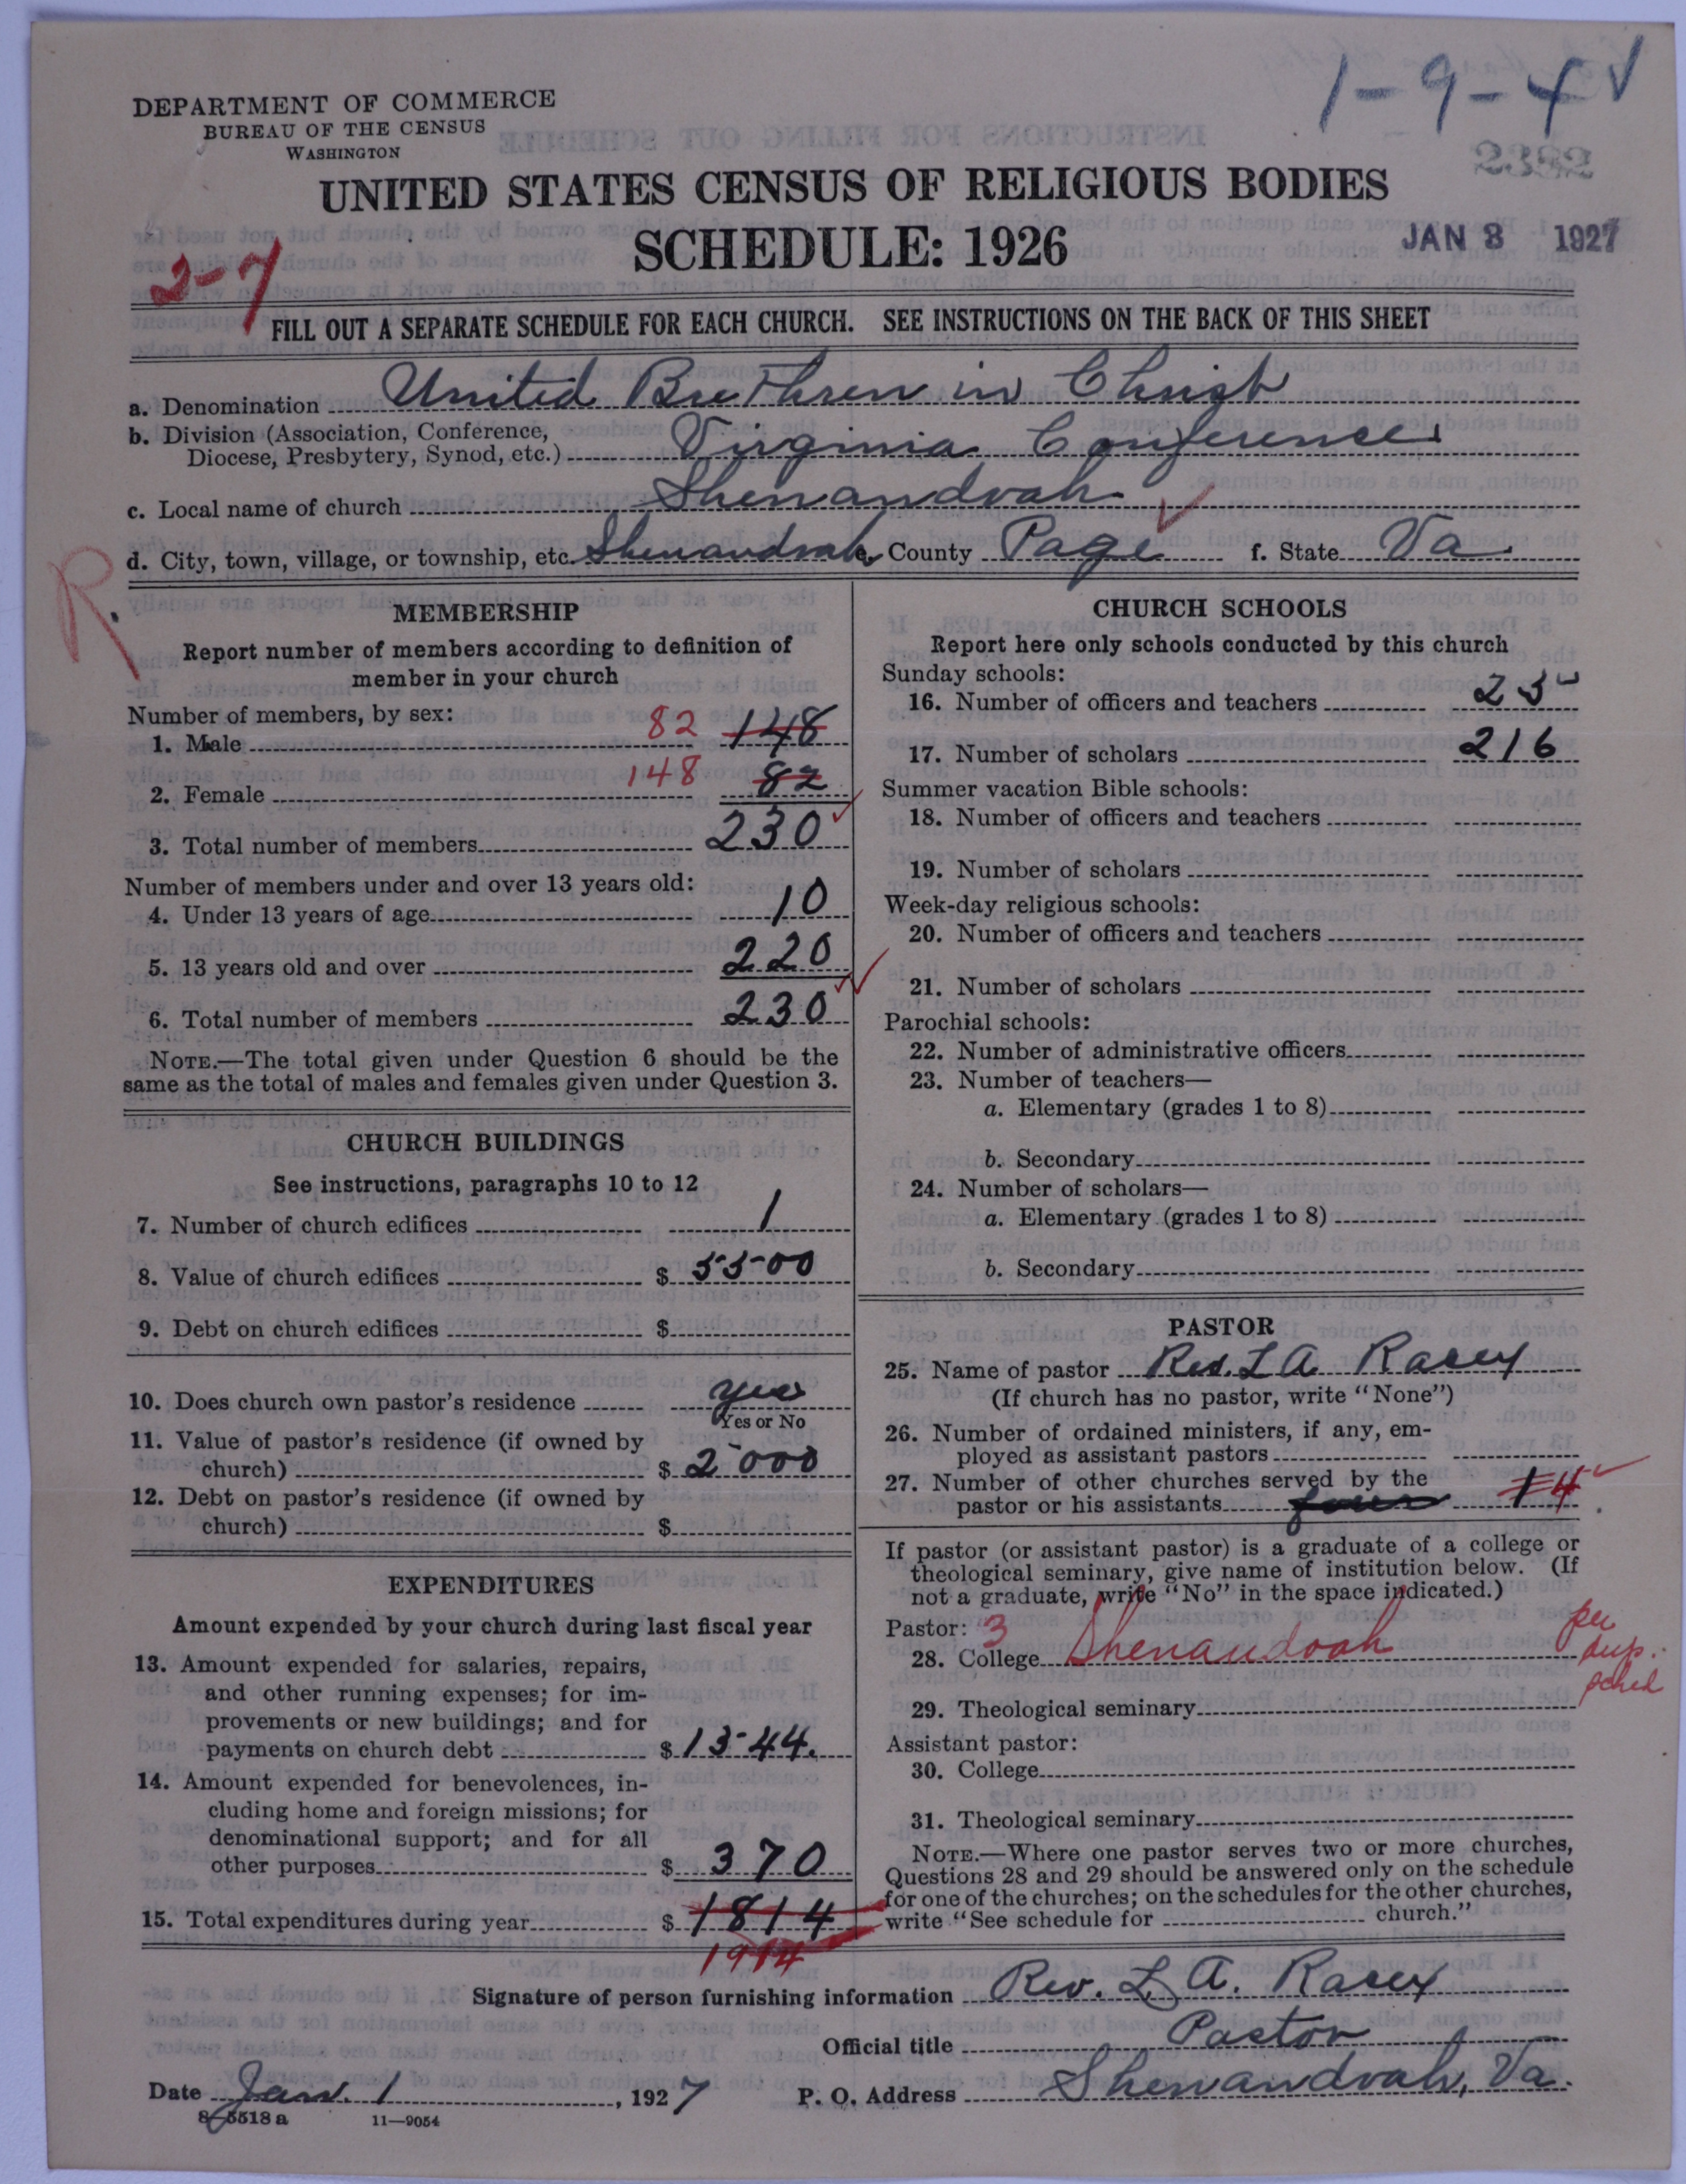 1-9-4 √
DEPARTMENT OF COMMERCE
BUREAU OF THE CENSUS
WASHINGTON
UNITED STATES CENSUS OF RELIGIOUS BODIES
SCHEDULE: 1926
JAN 8 1927
2-7
FILL OUT A SEPARATE SCHEDULE FOR EACH CHURCH. SEE INSTRUCTIONS ON THE BACK OF THIS SHEET
a. Denomination United Brethren in Christ
b. Division (Association, Conference,
Diocese, Presbytery, Synod, etc.) Virginia Conference
c. Local name of church Shenandoah
d. City, town, village, or township, etc. Shenandoah e. County Page f. State Va.
R.
MEMBERSHIP
Report number of members according to definition of
member in your church
Number of members, by sex:
1. Male 82 148
2. Female 148 82
3. Total number of members 230
Number of members under and over 13 years old:
4. Under 13 years of age 10
5. 13 years old and over 220
6. Total number of members 230
NOTE.—The total given under Question 6 should be the
same as the total of males and females given under Question 3.
CHURCH BUILDINGS
See instructions, paragraphs 10 to 12
7. Number of church edifices 1
8. Value of church edifices $ 5500
9. Debt on church edifices $
10. Does church own pastor's residence yes
Yes or No
11. Value of pastor's residence (if owned by
church) $ 2000
12. Debt on pastor's residence (if owned by
church) $
EXPENDITURES
Amount expended by your church during last fiscal year
13. Amount expended for salaries, repairs,
and other running expenses; for im-
provements or new buildings; and for
payments on church debt $ 1544.
14. Amount expended for benevolences, in-
cluding home and foreign missions; for
denominational support; and for all
other purposes $ 370
15. Total expenditures during year $ 1814
1914
CHURCH SCHOOLS
Report here only schools conducted by this church
Sunday schools:
16. Number of officers and teachers 25
17. Number of scholars 216
Summer vacation Bible schools:
18. Number of officers and teachers
19. Number of scholars
Week-day religious schools:
20. Number of officers and teachers
21. Number of scholars
Parochial schools:
22. Number of administrative officers
23. Number of teachers—
a. Elementary (grades 1 to 8)
b. Secondary
24. Number of scholars—
a. Elementary (grades 1 to 8)
b. Secondary
PASTOR
25. Name of pastor Rev. L A Racey
(If church has no pastor, write "None")
26. Number of ordained ministers, if any, em-
ployed as assistant pastors
27. Number of other churches served by the
pastor or his assistants four 1 4
If pastor (or assistant pastor) is a graduate of a college or
theological seminary, give name of institution below. (If
not a graduate, write "No" in the space indicated.)
Pastor: 3
28. College Shenandoah per
dup.
sched
29. Theological seminary
Assistant pastor:
30. College
31. Theological seminary
NOTE.—Where one pastor serves two or more churches,
Questions 28 and 29 should be answered only on the schedule
for one of the churches; on the schedules for the other churches,
write "See schedule for church."
Signature of person furnishing information Rev. L. A. Racey
Official title Pastor
Date Jan. 1, 1927 P. O. Address Shenandoah, Va.
8-5518 a 11-9054